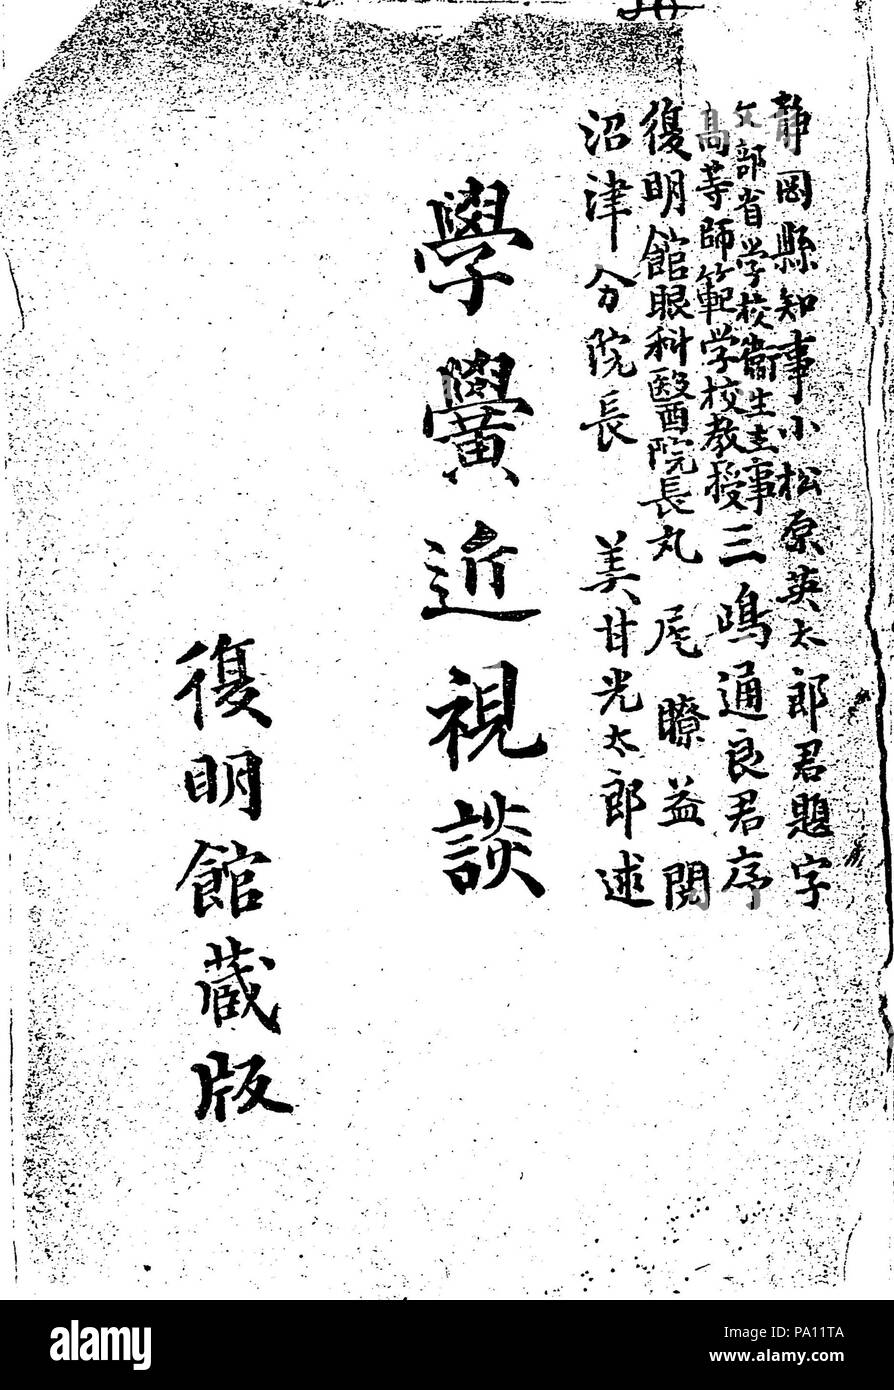 静岡縣知事小松原英太郎君題字
文部省学校衞生主事
高等師範学校教授 三嶋通良君序
復明館眼科醫院長 丸尾瞭益閲
沼津分院長 美甘光太郎述
學黌近視談
復明館蔵版
alamy
Image ID: PA11TA
www.alamy.com